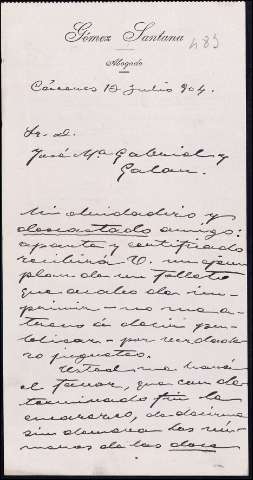 Gómez Santana
489
Abogado
Cáceres 15 Julio 904.
Sr. D.
José Mª Gabriel y
Galan.
Mi olvidadizo y
descastado amigo:
aparte y certificado
recibirá V. un ejem
plar de un folleto
que acabo de im-
primir - no me a-
trevo á decir pu-
blicar - por verdade
ro juguetes.
Usted me hará
el favor, que con de
terminado fin le
encarezco, de decirme
sin demora los nú-
meros de las doce